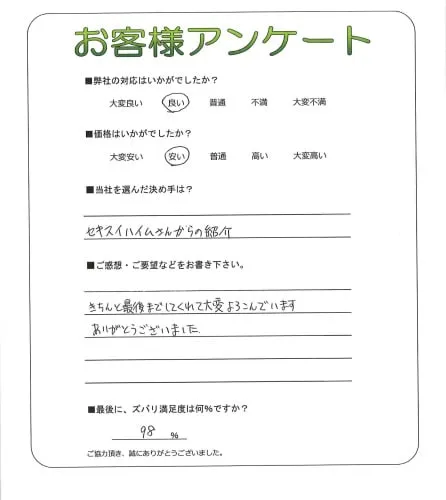 お客様アンケート
■弊社の対応はいかがでしたか?
大変良い 良い 普通 不満 大変不満
■価格はいかがでしたか?
大変安い 安い 普通 高い 大変高い
■当社を選んだ決め手は?
セキスイハイムさんからの紹介
■ご感想・ご要望などをお書き下さい。
きちんと最後までしてくれて大変よろこんでいます
ありがとうございました
■最後に、ズバリ満足度は何%ですか?
98 %
ご協力頂き、誠にありがとうございました。